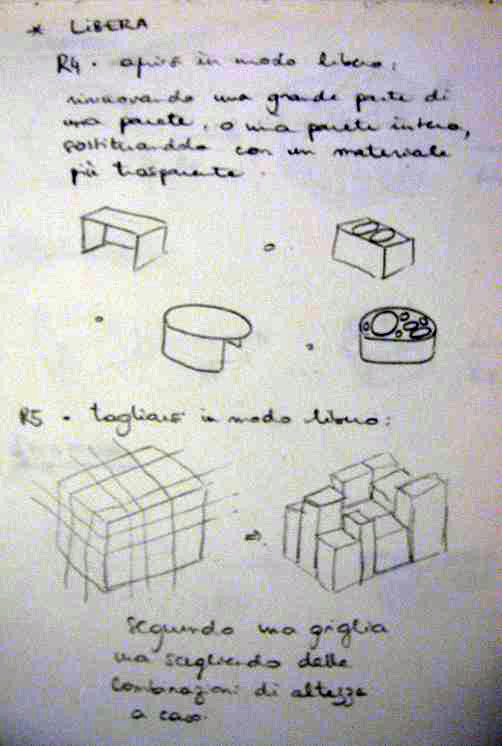 * LIBERA
R4. aprire in modo libero:
rimuovendo una grande parte di
una parete, o una parete intera,
sostituendola con un materiale
più trasparente.
R5 - tagliare in modo libero:
Seguendo una griglia
ma scegliendo delle
combinazioni di altezze
a caso.